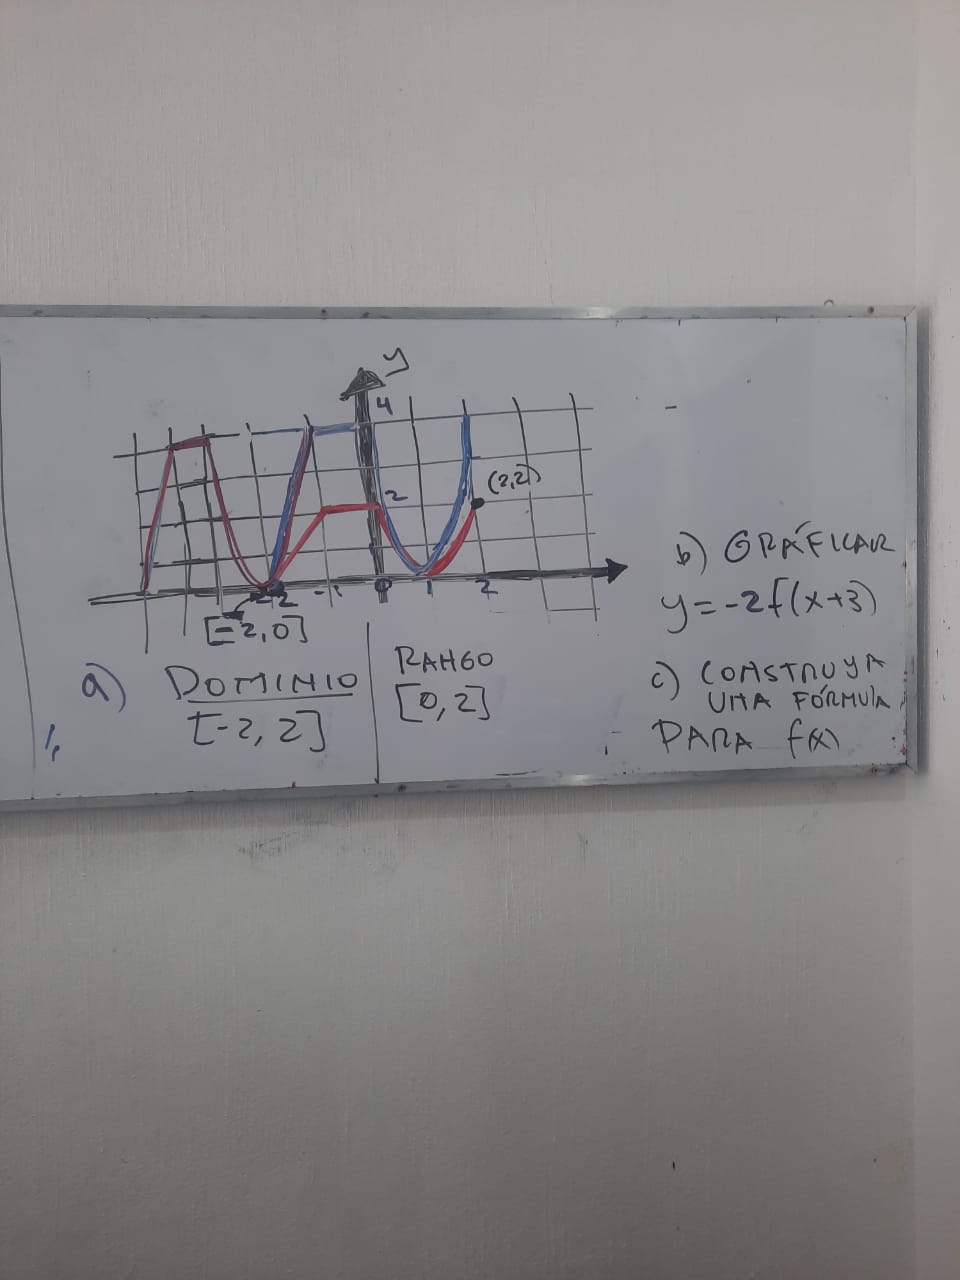 y
4
(2,2)
2
-2 -1 0 1 2
[-2,0]
a) DOMINIO
[-2, 2]
RANGO
[0, 2]
b) GRÁFICAR
y=-2f(x+3)
c) CONSTRUYA
UNA FÓRMULA
PARA f(x)